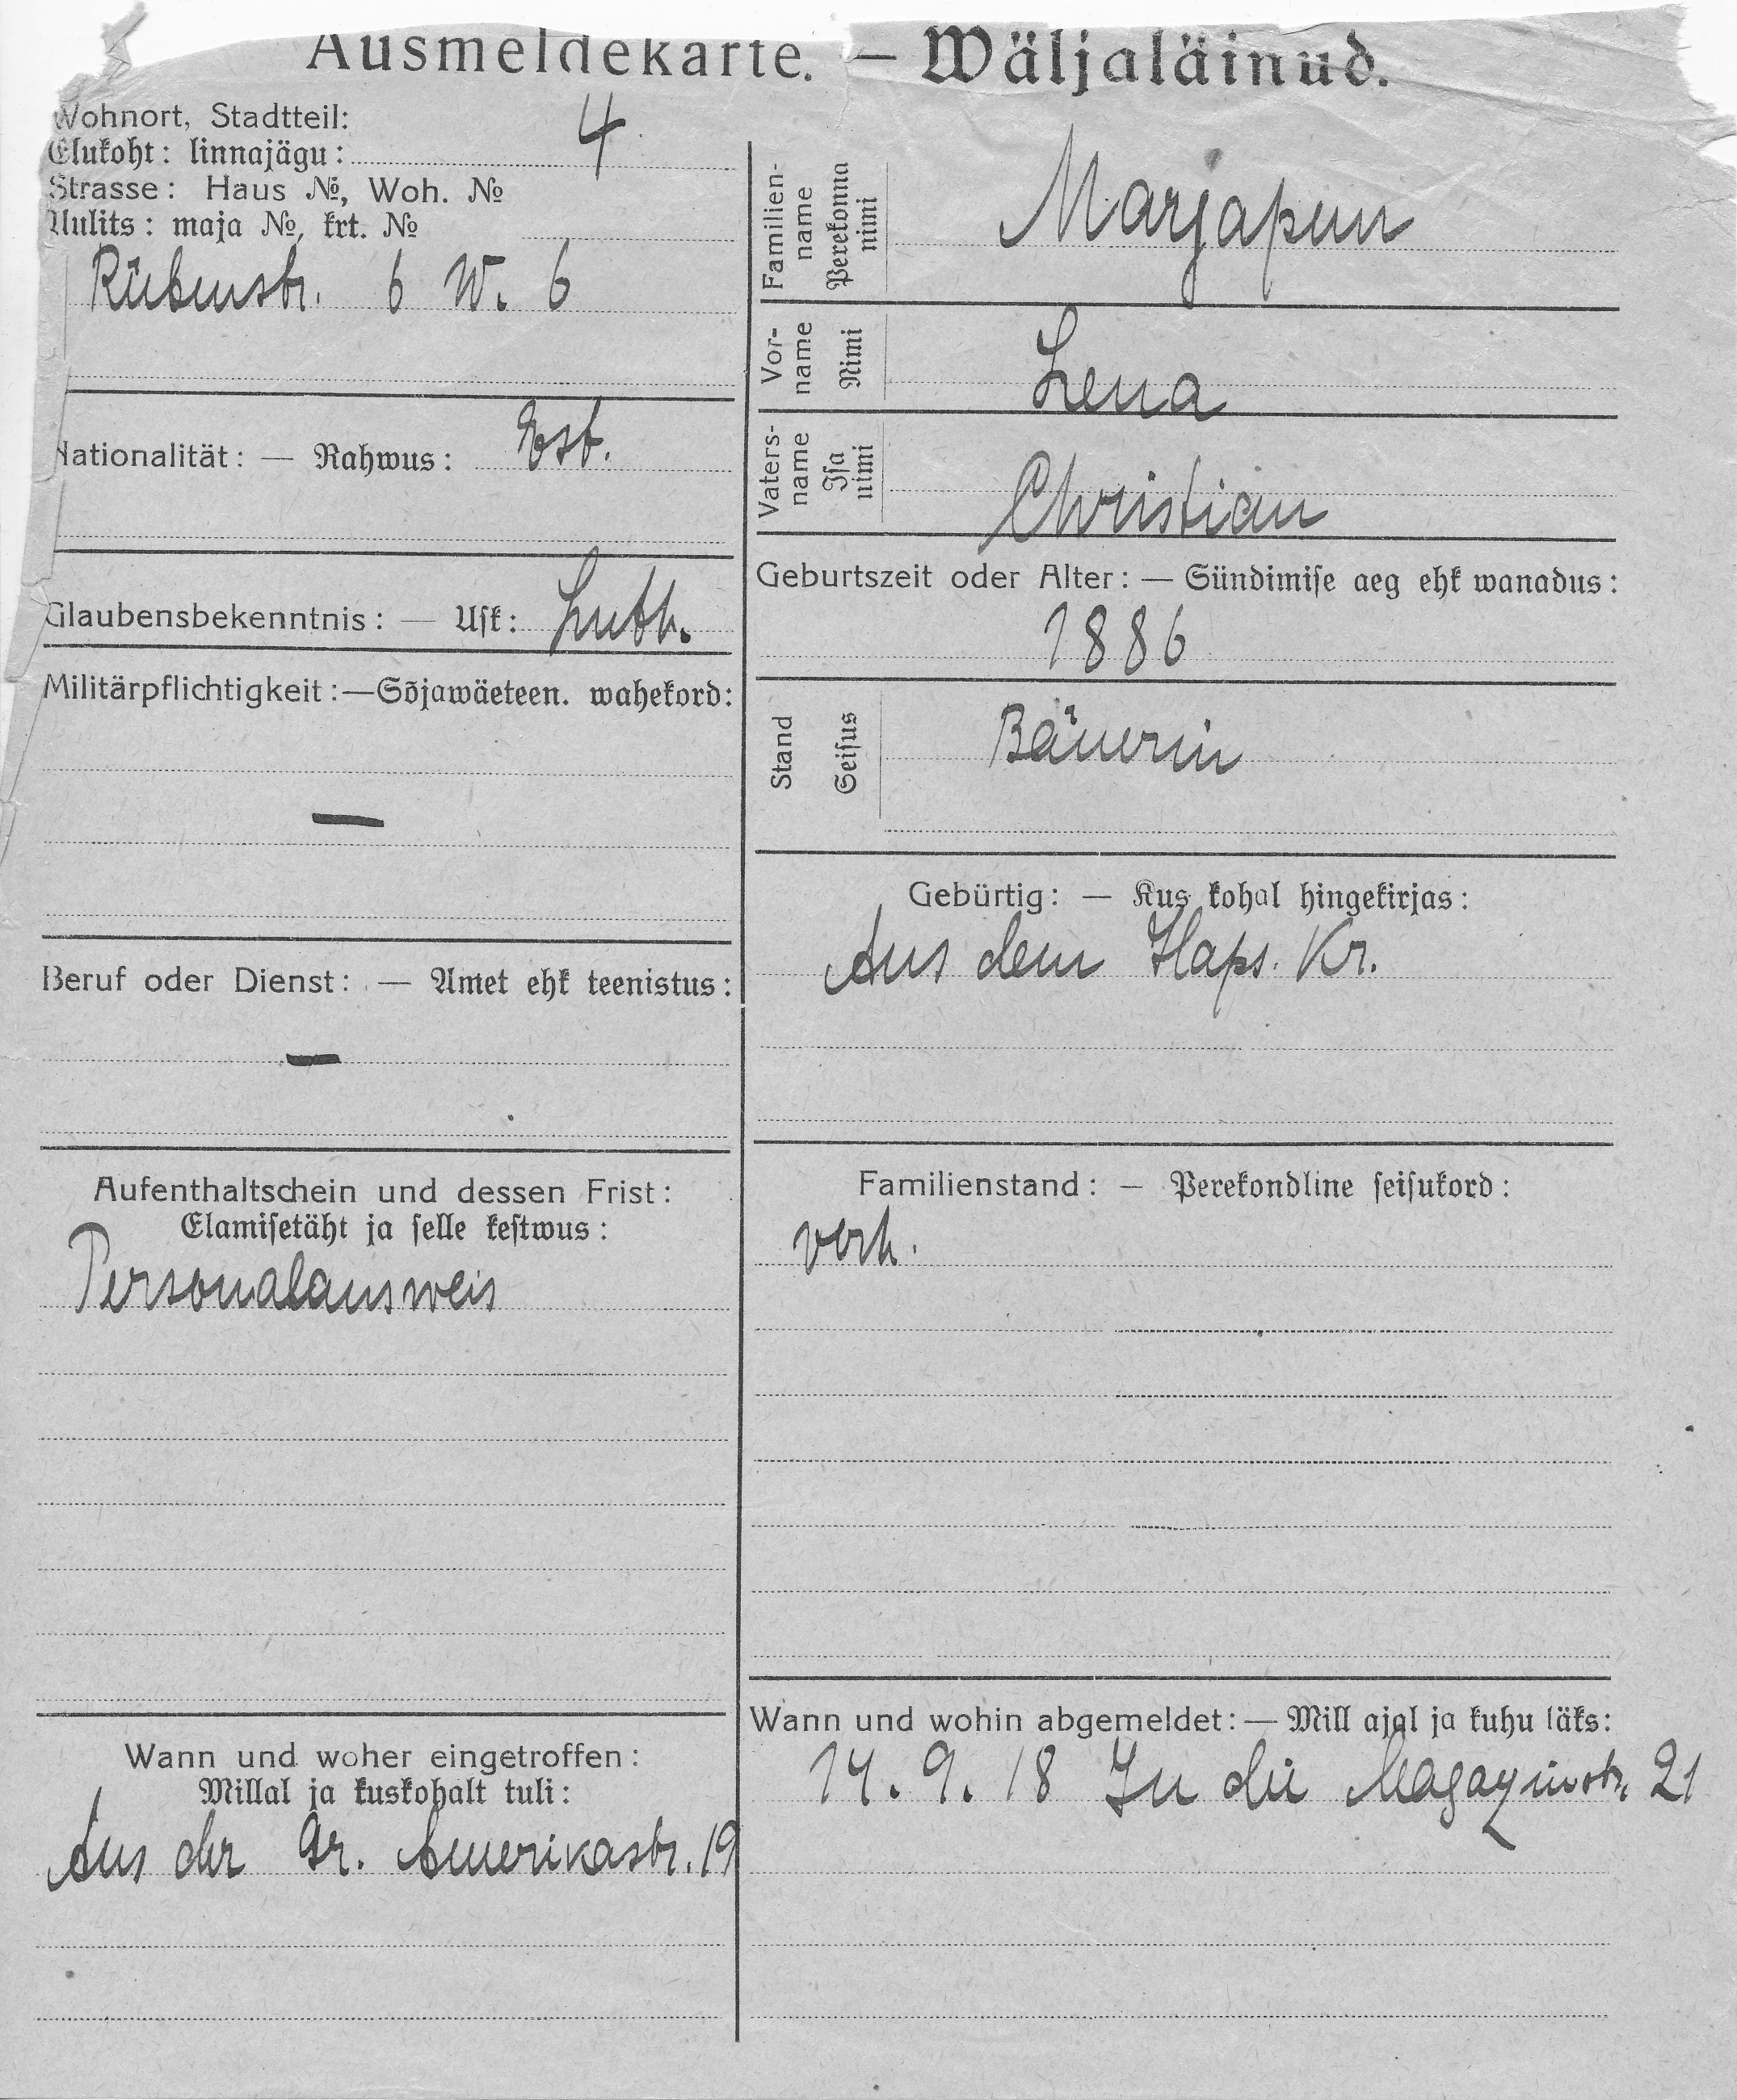 Ausmeldekarte. — Wäljaläinud.
Wohnort, Stadtteil:
Elukoht: linnajägu: 4
Strasse: Haus №, Woh. №
Uulits: maja №, krt. №
Rübenstr. 6 W. 6
Nationalität: — Rahwus: Est.
Glaubensbekenntnis: — Usk: Luth.
Militärpflichtigkeit:—Sõjawäeteen. wahekord:
—
Beruf oder Dienst: — Amet ehk teenistus:
—
Aufenthaltschein und dessen Frist:
Elamisetäht ja selle kestwus:
Personalausweis
Wann und woher eingetroffen:
Millal ja kuskohalt tuli:
Aus der Gr. Amerikastr. 19
Familien-
name
Perekonna
nimi
Marjapuu
Vor-
name
Nimi
Lena
Vaters-
name
Isa
nimi
Christian
Geburtszeit oder Alter: — Sündimise aeg ehk wanadus:
1886
Stand
Seisus
Bäuerin
Gebürtig: — Kus kohal hingekirjas:
Aus dem Haps. Kr.
Familienstand: — Perekondline seisukord:
verh.
Wann und wohin abgemeldet:— Mill ajal ja kuhu läks:
14. 9. 18 In die Magazinstr. 21